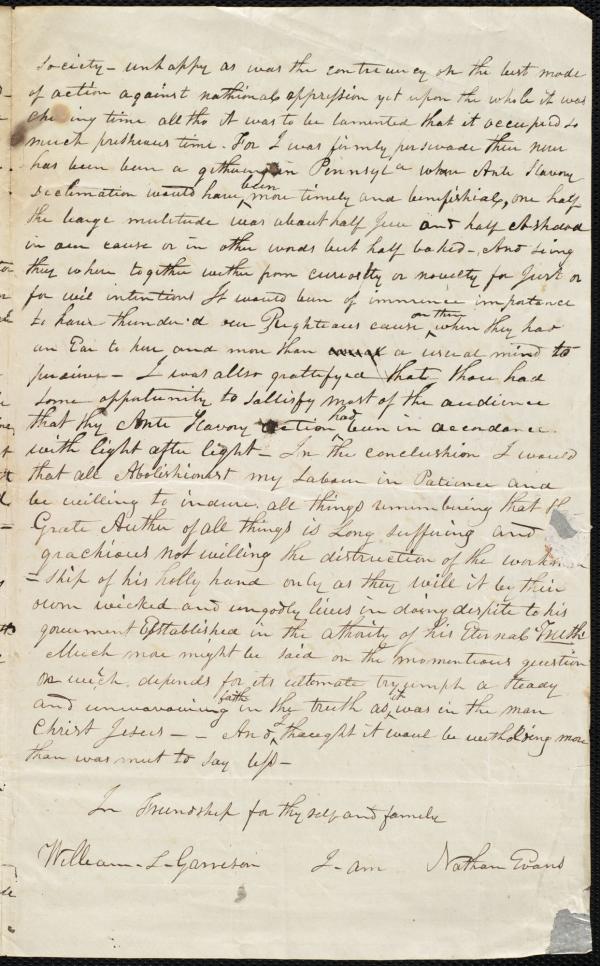 Society - unhappy as was the contrivercy on the best mode
of action against nathional oppression yet upon the whole it was
cheering time altho it was to be lamented that it occupied so
much preshious time - For I was firmly perswade ther never
has been been a githuring in Pennsyl a when Ante Slavory
Declimation would have been more timely and benifishial, one half
the large multitude was about half Jew and half Ashdod
in our cause or in other words but half baked - And seing
they where togither wether from curiosity or novelty for Just or
for evil intentions It would ben of immence importance
to have thunder'd our Righteous cause on them when they had
an Ear to hear and more than a usual mind to
 - I was allso grattifyed that thou had
some oppertunity to sattisfy most of the audience
that thy Ante Slavory action had been in accordance
with light after light - In the conclushion I would
that all Abolishionist my Labour in Patience and
be willing to indure all things remembering that the
Grate Author of all things is Long suffering and
grachious not willing the distruction of the workman
-ship of his holly hand only as they will it by thir
own wicked and ungodly lives in doing despite to his
goverment Established in the athority of his Eternal Truths
Much more might be said on the momentious question
on wich depends for its ultemate tryumph a steady
and unwavouring faith in the truth as it was in the man
Christ Jesus - - And I thaught it woul be witholding more
than was meet to say less -
In Friendship for thy self and family
William - L - Garrison I - am Nathan Evans